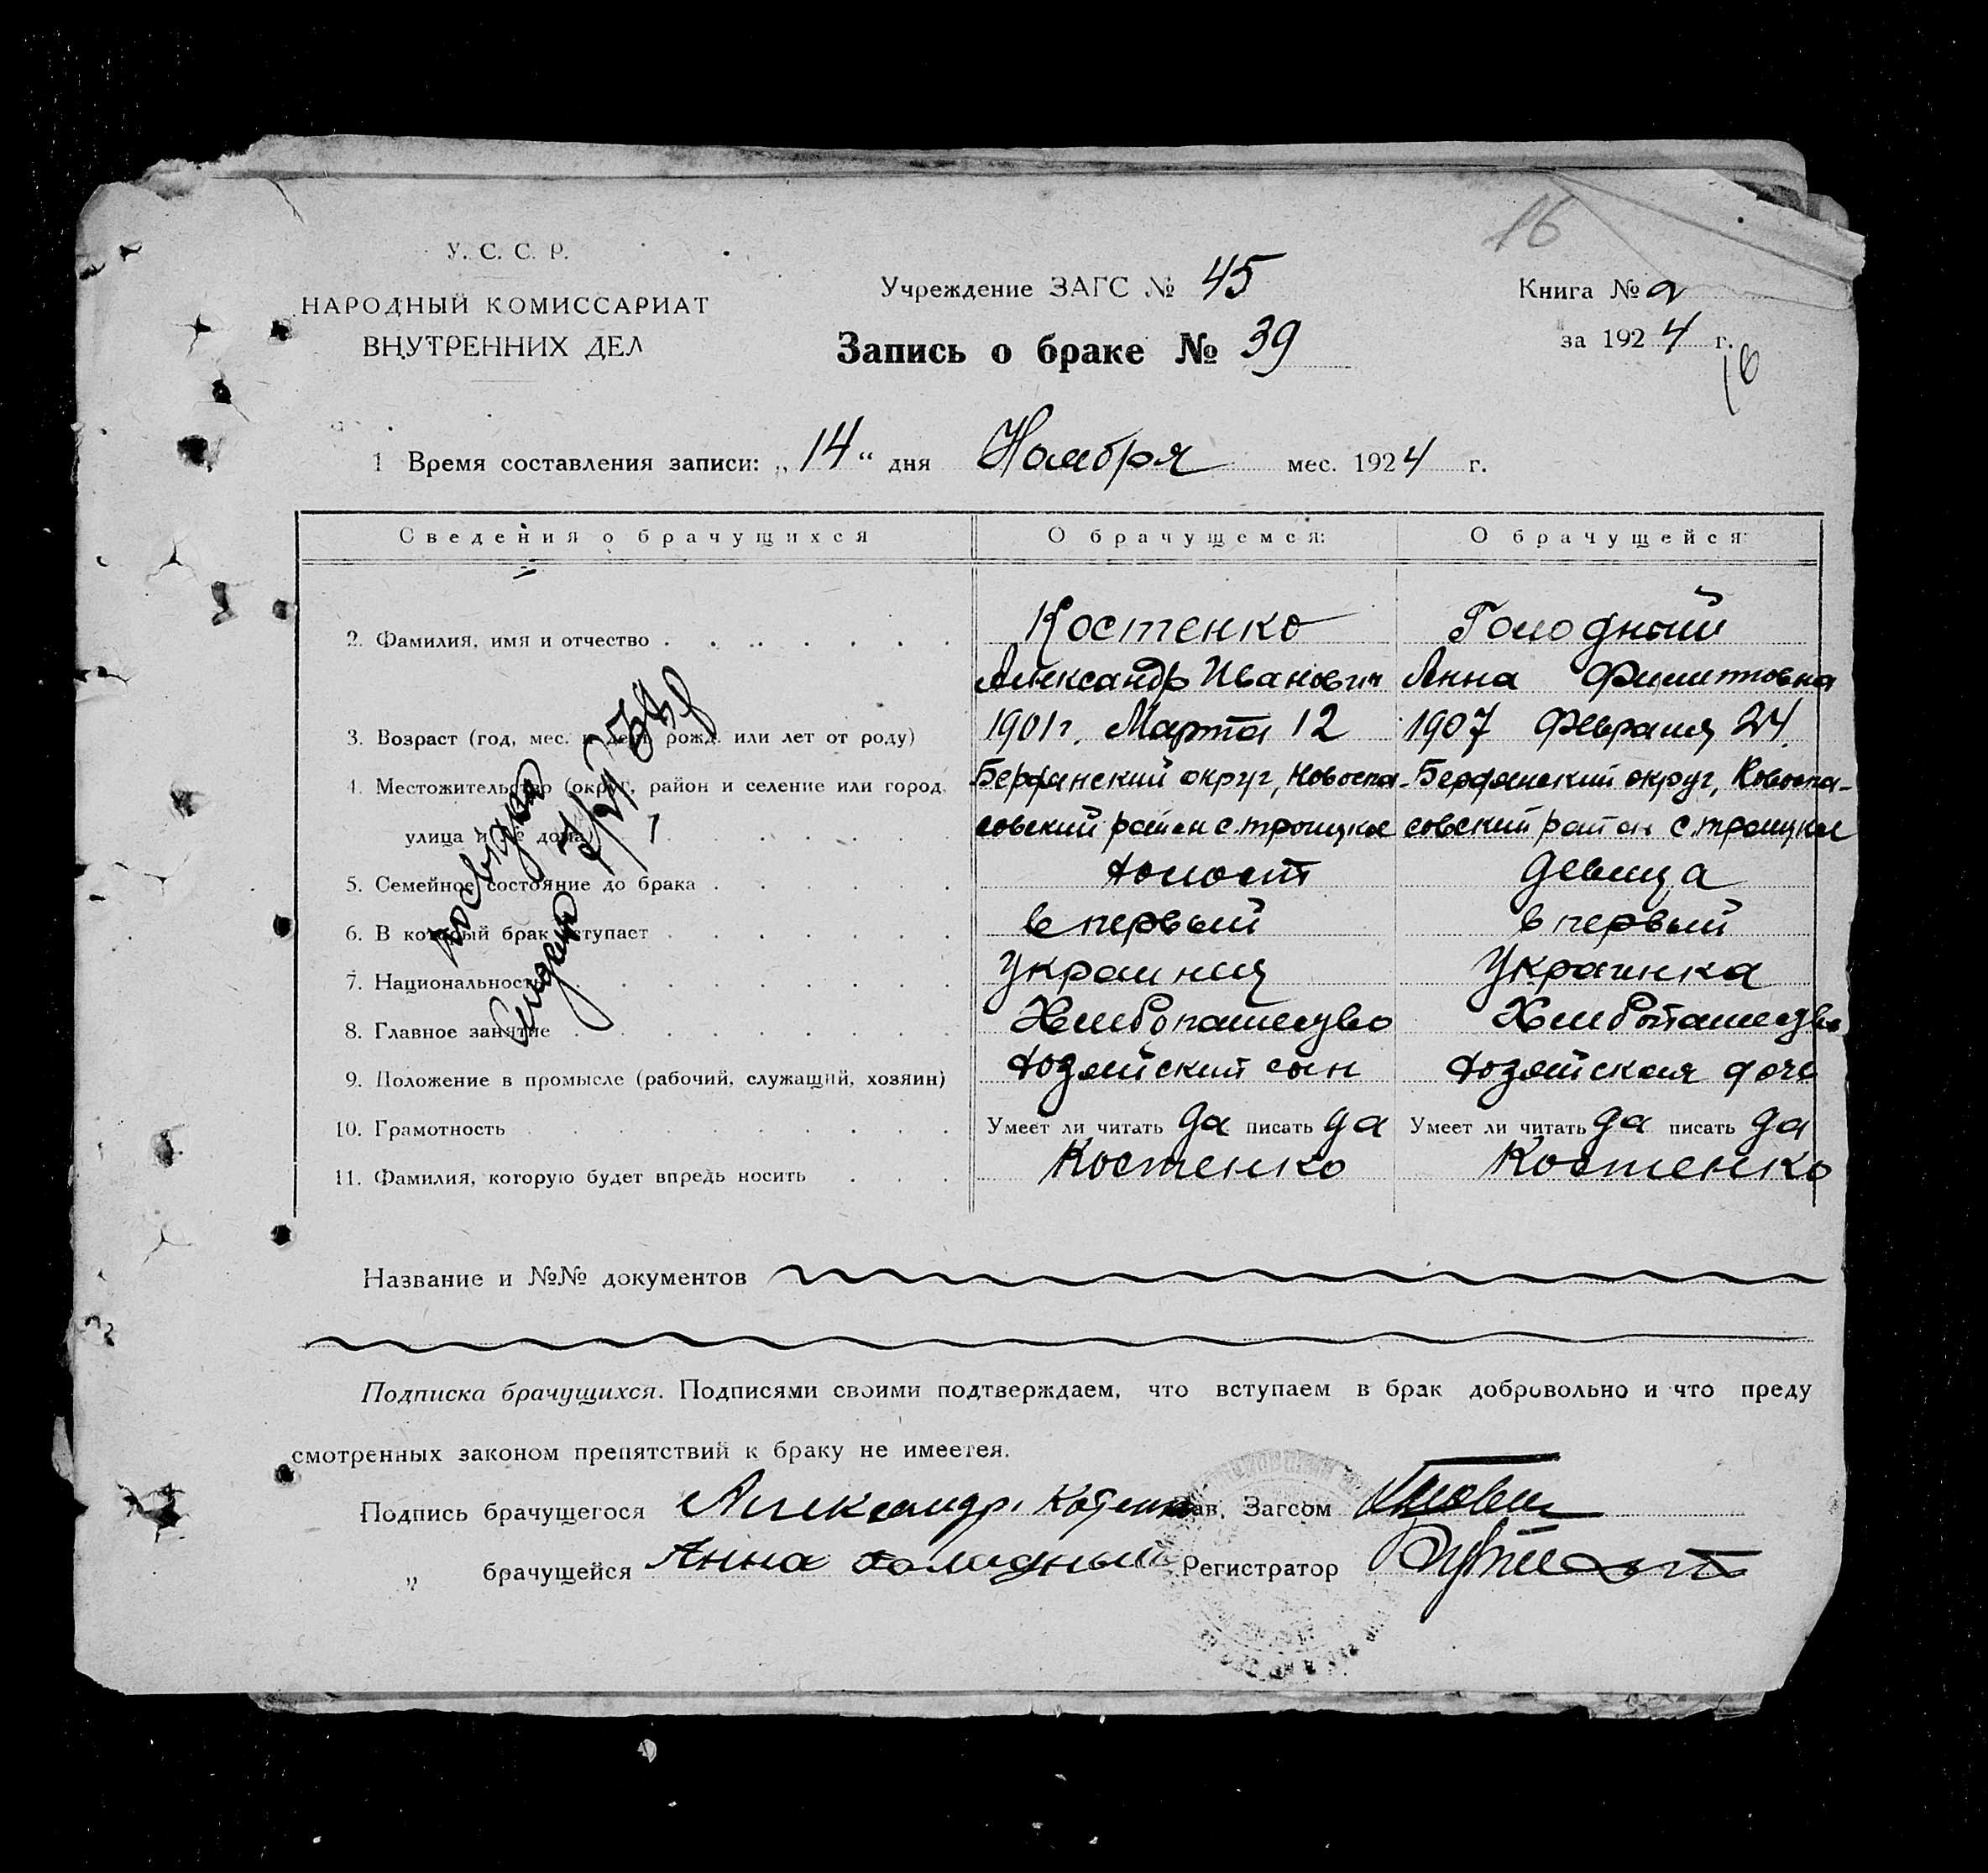 16
У. С. С. Р.
НАРОДНЫЙ КОМИССАРИАТ
ВНУТРЕННИХ ДЕЛ
Учреждение ЗАГС № 45
Запись о браке № 39
Книга № 2
за 1924 г.
16
1 Время составления записи: „14“ дня Ноября мес. 1924 г.
Сведения о брачущихся О брачущемся: О брачущейся:
2. Фамилия, имя и отчество Костенко Голодный
Александр Иванович Анна Филипповна
3. Возраст (год, мес. и день рожд. или лет от роду) 1901 г. Марта 12 1907 Февраля 24.
4. Местожительство (округ, район и селение или город, Бердянский округ, Новоспа- Бердянский округ, Новоспа-
улица и № дома) совский район с. Троицкое совский район с. Троицкое
5. Семейное состояние до брака холост девица
6. В который брак вступает в первый в первый
7. Национальность Украинец Украинка
8. Главное занятие Хлебопашество Хлебопашество
9. Положение в промысле (рабочий, служащий, хозяин) хозяйский сын хозяйская дочь
10. Грамотность Умеет ли читать да писать да Умеет ли читать да писать да
11. Фамилия, которую будет впредь носить Костенко Костенко
Название и №№ документов
Подписка брачущихся. Подписями своими подтверждаем, что вступаем в брак добровольно и что преду
смотренных законом препятствий к браку не имеется.
Подпись брачущегося Александр Зав. Загсом
„ брачущейся Анна Голодный Регистратор